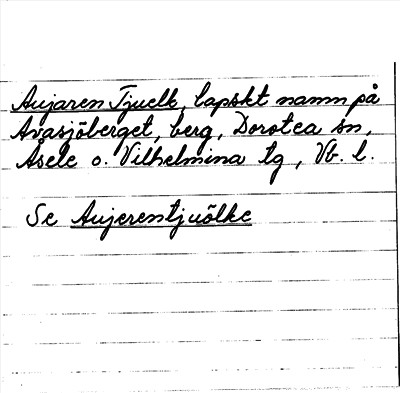 Aujaren Tjuelk, lapskt namn på
Avasjöberget, berg, Dorotea sn,
Åsele o. Vilhelmina tg, Vb. l.
Se Aujerentjuölke